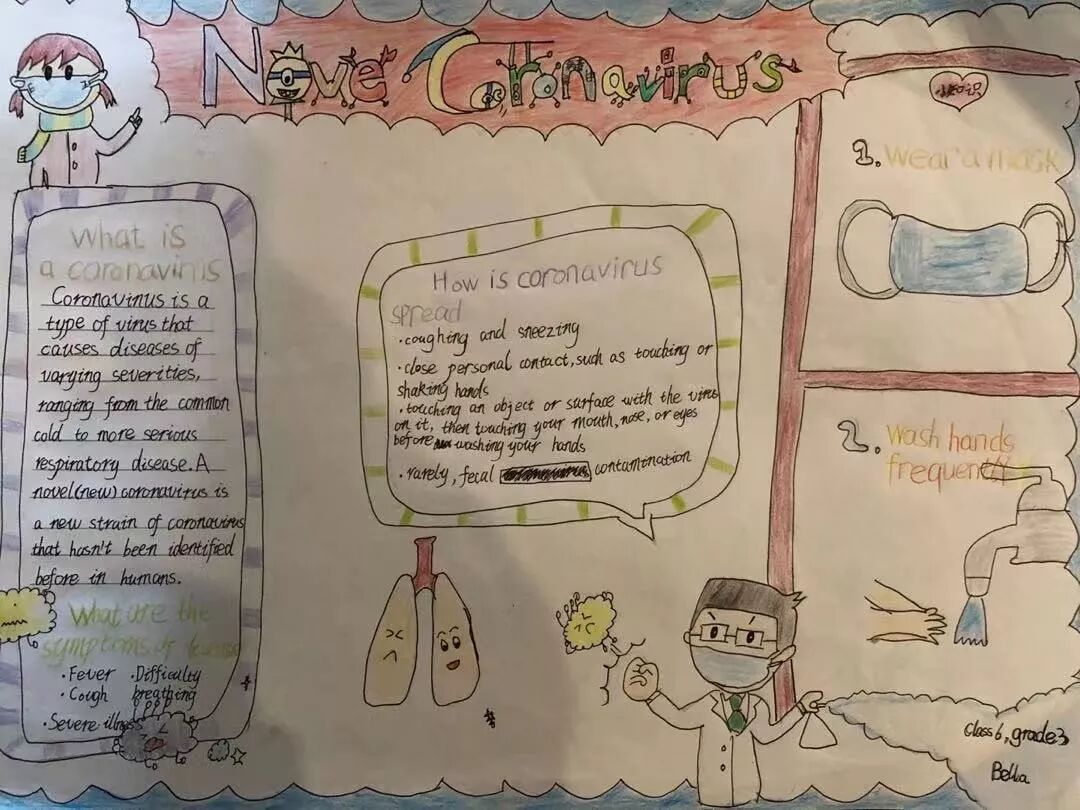 Novel Coronavirus
What is
a coronavirus
Coronavirus is a
type of virus that
causes diseases of
varying severities,
ranging from the common
cold to more serious
respiratory disease. A
novel(new) coronavirus is
a new strain of coronavirus
that hasn't been identified
before in humans.
What are the
symptoms of
· Fever · Difficulty
· Cough breathing
· Severe illness
How is coronavirus
spread
· coughing and sneezing
· close personal contact, such as touching or
shaking hands
· touching an object or surface with the virus
on it, then touching your mouth, nose, or eyes
before washing your hands
· rarely, fecal contamination
1. Wear a mask
2. wash hands
frequently
Class 6, grade 3
Bella